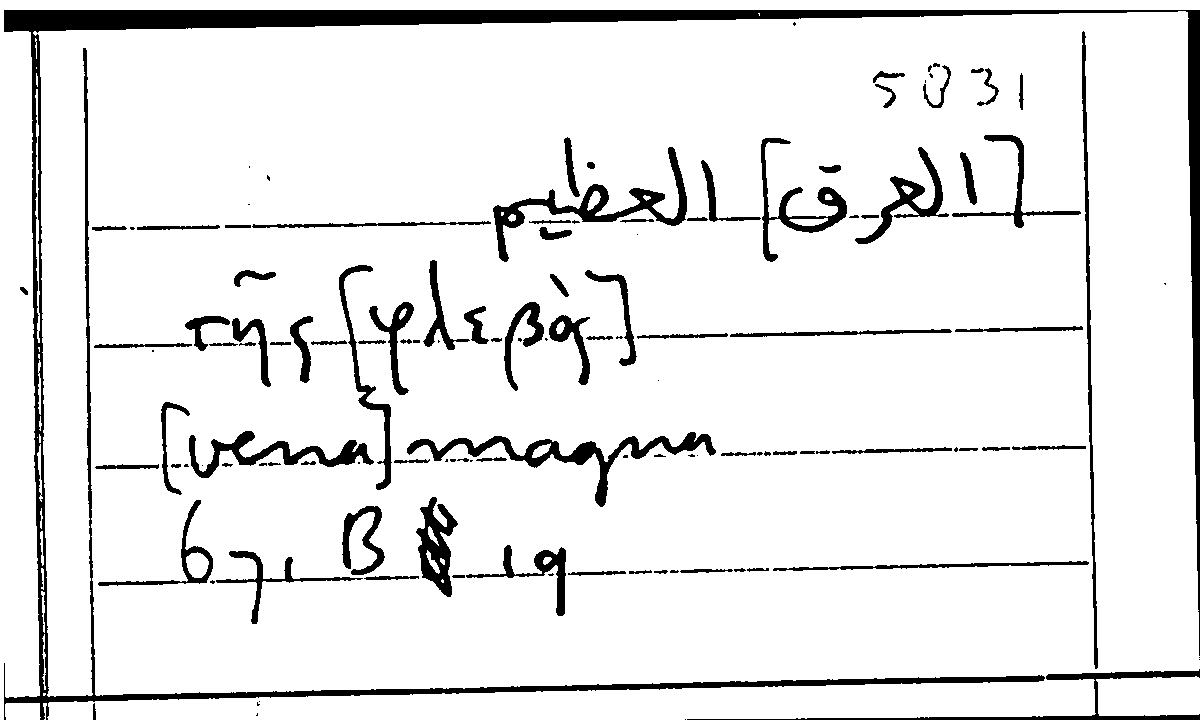 5831
[العرق] العظيم
τῆς [φλεβὸς]
[vena] magna
671 B 19